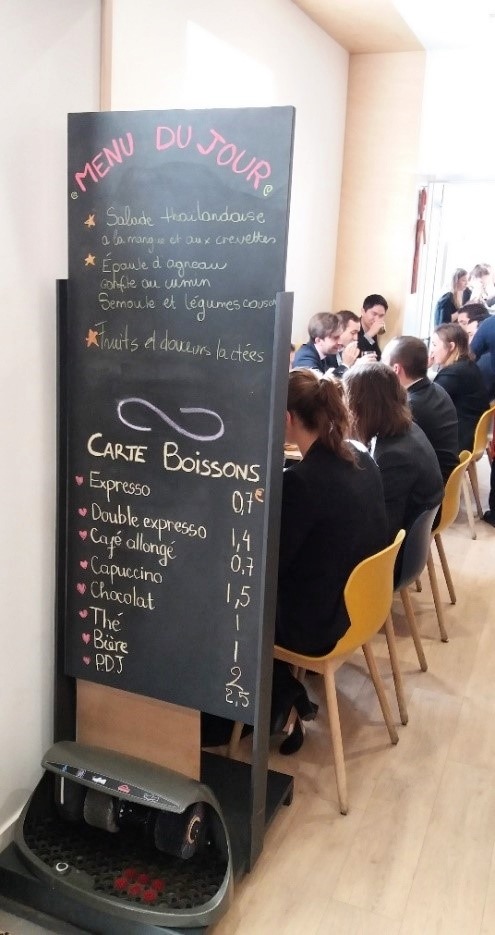 MENU DU JOUR
Salade thaïlandaise
a la mangue et aux crevettes
Épaule d'agneau
confite au cumin
Semoule et légumes couscous
Fruits et douceurs lactées
CARTE BOISSONS
Expresso 0,7€
Double expresso 1,4
Café allongé 0,7
Capuccino 1,5
Chocolat 1
Thé 1
Bière 2
P.DJ 2,5